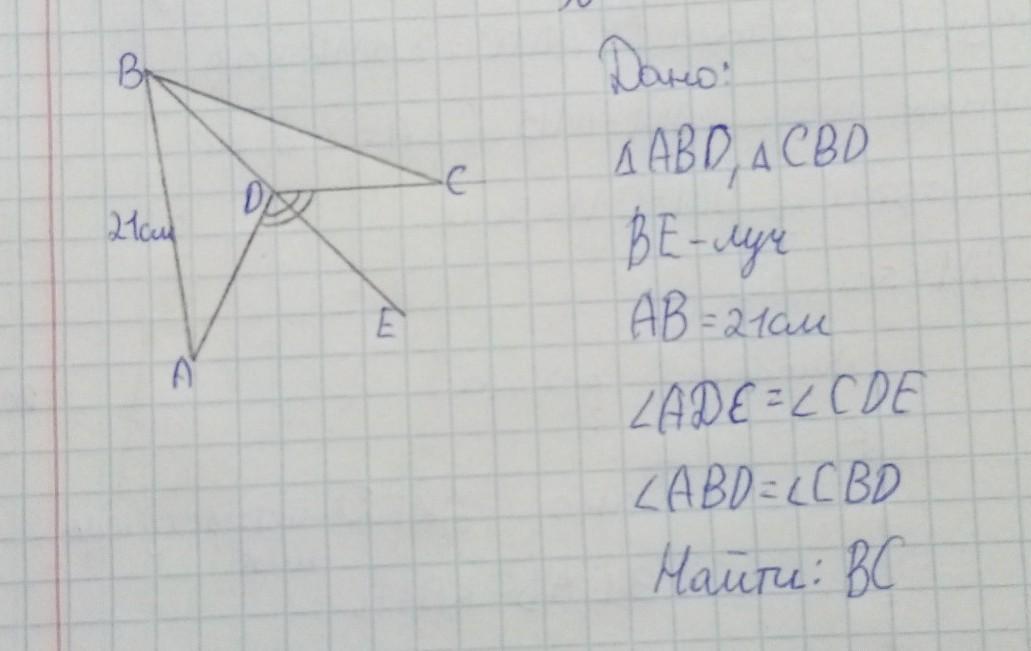 B
C
D
21см
E
A
Дано:
△ABD, △CBD
BE-луч
AB=21см
∠ADE=∠CDE
∠ABD=∠CBD
Найти: BC